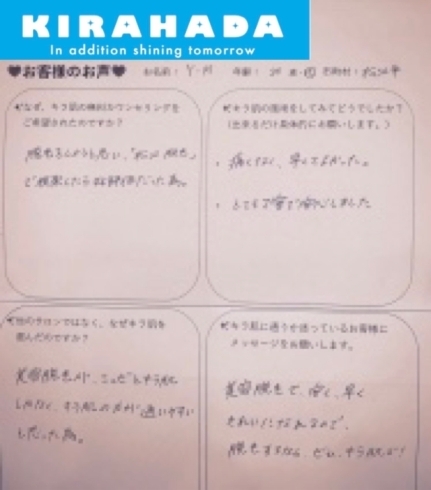 KIRAHADA
In addition shining tomorrow
♥お客様のお声♥ お名前： Y・M 年齢：
なぜ、キラ肌の無料カウンセリングを
ご希望されたのですか？
キラ肌の施術をしてみてどうでしたか？
（出来るだけ具体的にお願いします。）
脱毛をしようと思い、
で検索したら
痛くなく、早くてよかった。
とても丁寧で安心しました
他のサロンではなく、なぜキラ肌を
選んだのですか？
キラ肌に通うか迷っているお客様に
メッセージをお願いします。
美容脱毛が、
キラ肌の方が通いやすい
と思った為。
美容脱毛で、安く、早く
きれいになれるので、
脱毛するなら、ぜひ、キラ肌へ！